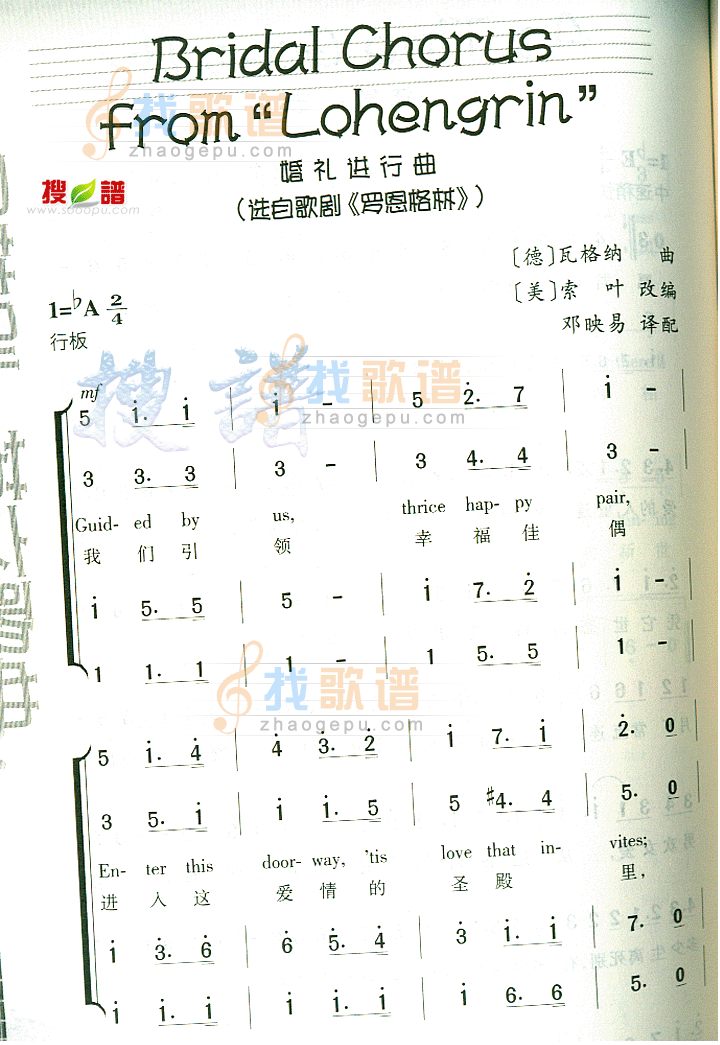 Bridal Chorus
from "Lohengrin"
婚礼进行曲
(选自歌剧《罗恩格林》)
搜谱
www.sooopu.com
找歌谱
zhaogepu.com
〔德〕瓦格纳 曲
〔美〕索 叶 改编
邓映易 译配
1=♭A 2/4
行板
mf
5 i̇. i̇ | i̇ - | 5 2̇. 7 | i̇ -
3 3. 3 | 3 - | 3 4. 4 | 3 -
Guid- ed by us, thrice hap- py pair,
我 们 引 领 幸 福 佳 偶
i̇ 5. 5 | 5 - | i̇ 7. 2̇ | i̇ -
1 1. 1 | 1 - | 1 5. 5 | 1 -
找歌谱
zhaogepu.com
5 i̇. 4̇ | 4̇ 3̇. 2̇ | i̇ 7. i̇ | 2̇. 0
3 5. i̇ | i̇ i̇. 5 | 5 #4. 4 | 5. 0
En- ter this door- way, 'tis love that in- vites;
进 入 这 爱 情 的 圣 殿 里,
i̇ 3̇. 6̇ | 6̇ 5̇. 4̇ | 3̇ i̇. i̇ | 7. 0
i̇ i̇. i̇ | i̇ i̇. i̇ | i̇ 6. 6 | 5. 0